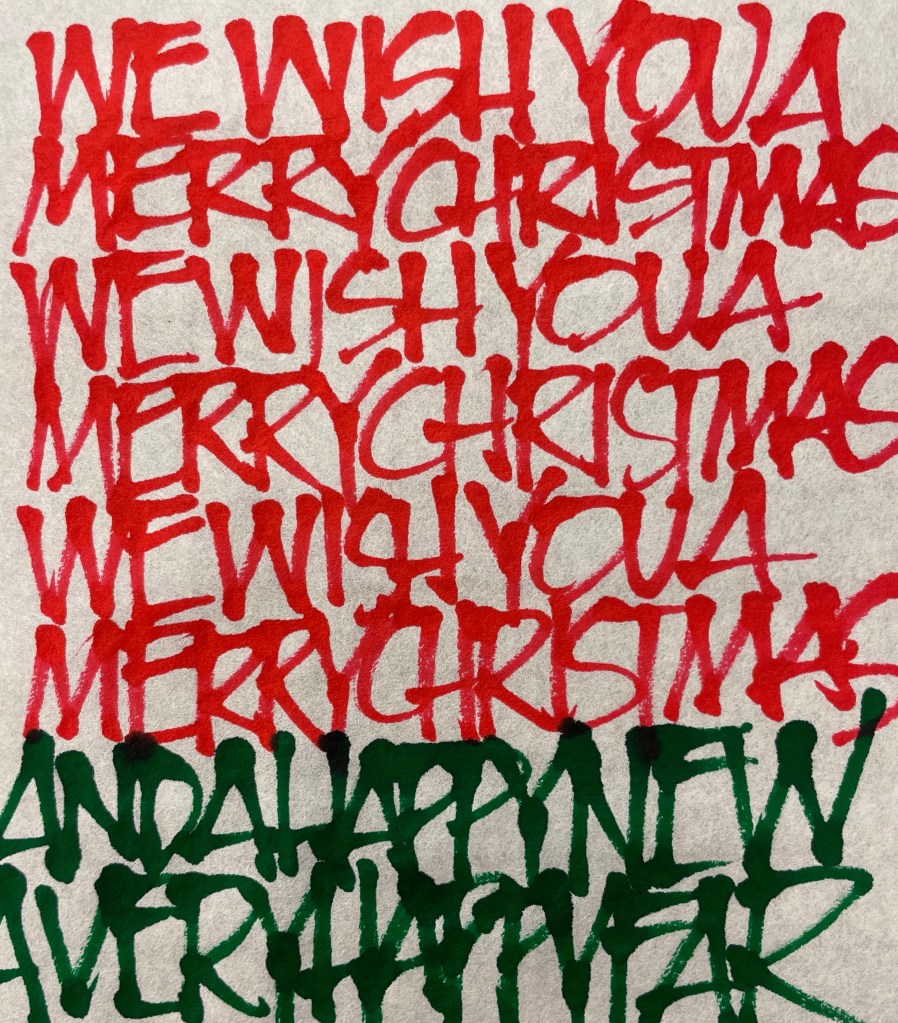 WE WISH YOU A
MERRY CHRISTMAS
WE WISH YOU A
MERRY CHRISTMAS
WE WISH YOU A
MERRY CHRISTMAS
AND A HAPPY NEW
A VERY HAPPYEAR